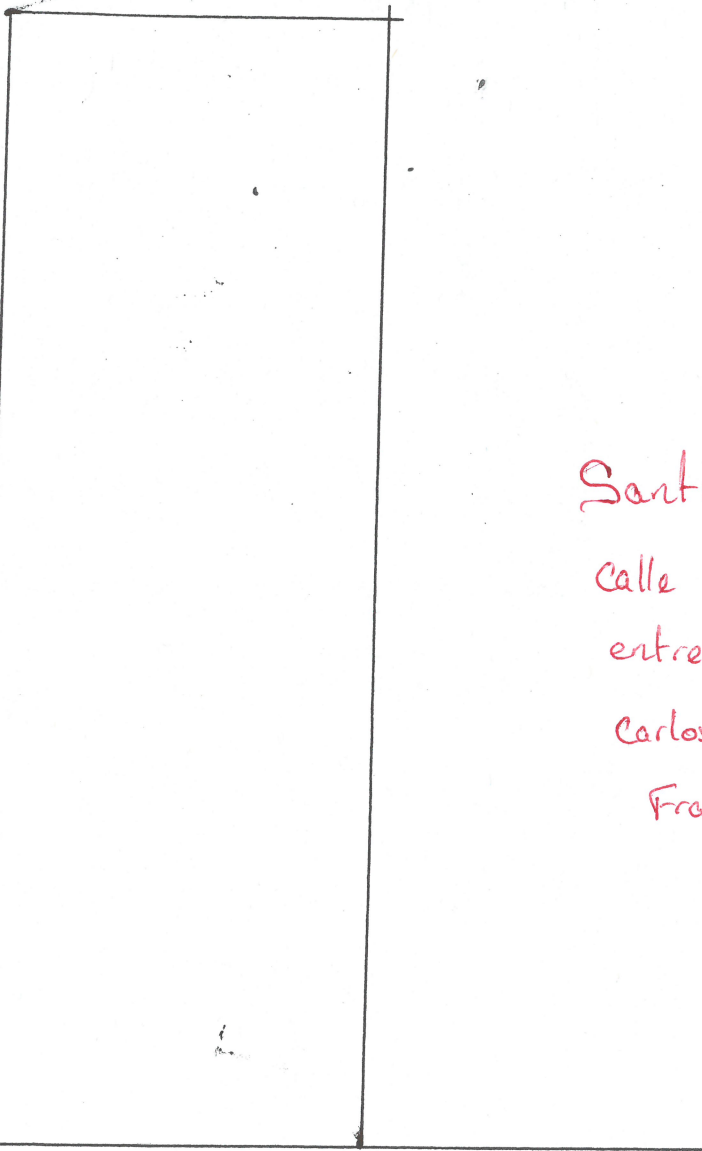 Sant
Calle
entre
Carlos
Fra